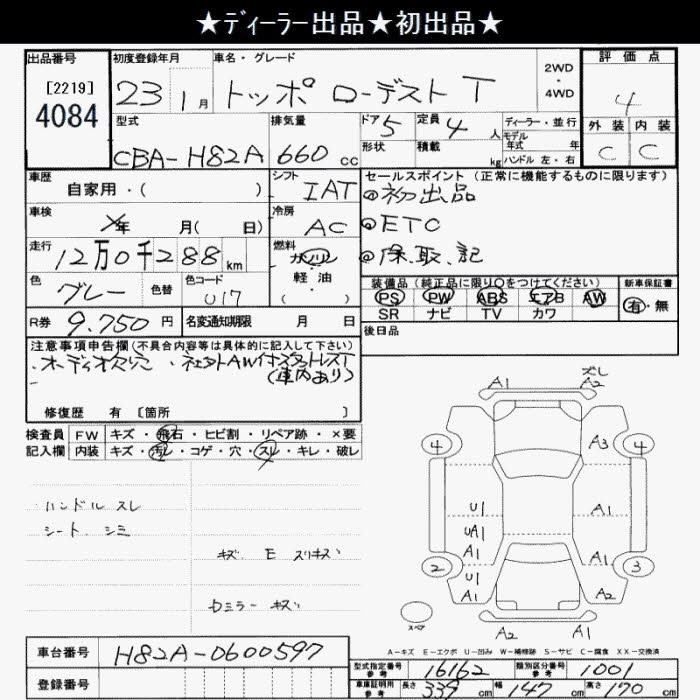 ★ディーラー出品★初出品★
出品番号 初度登録年月 車名・グレード 2WD・4WD 評価点
[2219] 4084 23 1月 トッポ ローデスト T 4
型式 排気量 ドア 5 定員 4人 ディーラー・並行 外装 内装
モデル年式 年
CBA-H82A 660cc 形状 積載 kg ハンドル 左・右 C C
車歴 シフト セールスポイント (正常に機能するものに限ります)
自家用・( ) IAT ◎初出品
車検 年 月( 日) 冷房 AC ◎ETC
走行 燃料 ◎保、取、記
12万0千288km ガソリン
軽・油
・( )
色 グレー 色替 色コード U17
装備品 (純正品に限り○をつけてください) 新車保証書
PS PW ABS エアB AW 有・無
SR ナビ TV カワ
R券 9.750円 名変通知期限 月 日
後日品
注意事項申告欄(不具合内容等は具体的に記入して下さい)
・オーディオ欠品 ・社外AW付スタットレスT
(車内あり)
修復歴 有 [箇所 ]
検査員 FW キズ・飛石・ヒビ割・リペア跡・×要
記入欄 内装 キズ・汚レ・コゲ・穴・スレ・キレ・破レ
ハンドル スレ
シート シミ
キズ E スリキズ
Dミラー キズ
ズレ
A1 A2
4 A3 4
U1 A1
UA1
A1 A1
2 3
U1
A1 A2
スペア
A2 A1
A-キズ E-エクボ U-凹み W-補修跡 S-サビ C-腐食 XX-交換済
車台番号 H82A-0600597
登録番号
型式指定番号 参考 16162 類別区分番号 参考 1001
車庫証明用 参考 長さ 339cm 幅 147cm 高さ 170cm